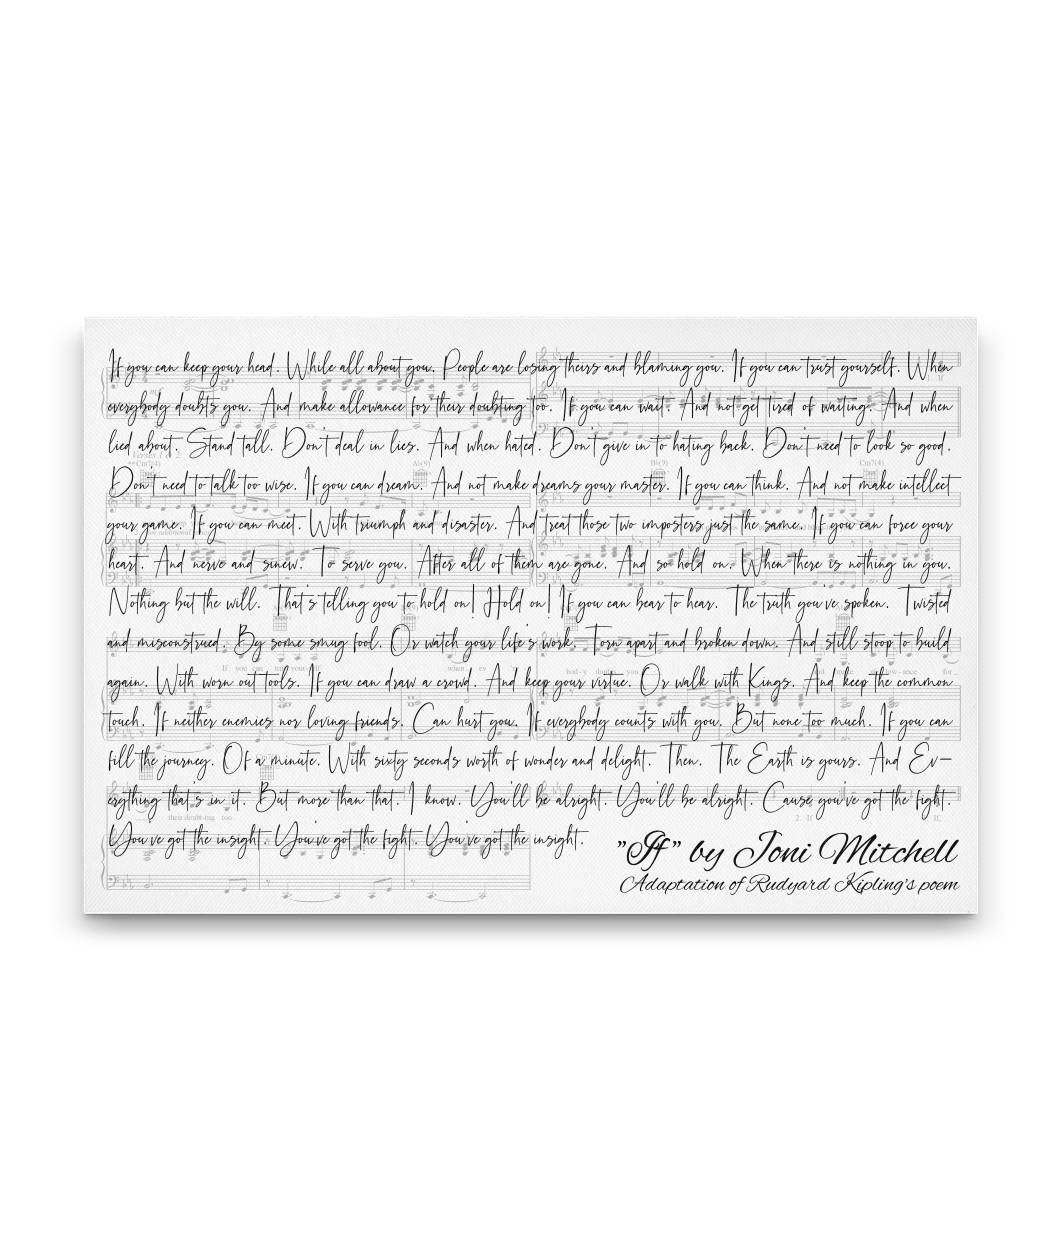 If you can keep your head. While all about you. People are losing theirs and blaming you. If you can trust yourself. When
everybody doubts you. And make allowance for their doubting too. If you can wait. And not get tired of waiting. And when
lied about. Stand tall. Don't deal in lies. And when hated. Don't give in to hating back. Don't need to look so good.
Don't need to talk too wise. If you can dream. And not make dreams your master. If you can think. And not make intellect
your game. If you can meet. With triumph and disaster. And treat those two imposters just the same. If you can force your
heart. And nerve and sinew. To serve you. After all of them are gone. And so hold on. When there is nothing in you.
Nothing but the will. That's telling you to hold on! Hold on! If you can bear to hear. The truth you've spoken. Twisted
and misconstrued. By some smug fool. Or watch your life's work. Torn apart and broken down. And still stoop to build
again. With worn out tools. If you can draw a crowd. And keep your virtue. Or walk with Kings. And keep the common
touch. If neither enemies nor loving friends. Can hurt you. If everybody counts with you. But none too much. If you can
fill the journey. Of a minute. With sixty seconds worth of wonder and delight. Then. The Earth is yours. And Ev-
erything that's in it. But more than that. I know. You'll be alright. You'll be alright. Cause you've got the fight.
You've got the insight. You've got the fight. You've got the insight.
"If" by Joni Mitchell
Adaptation of Rudyard Kipling's poem